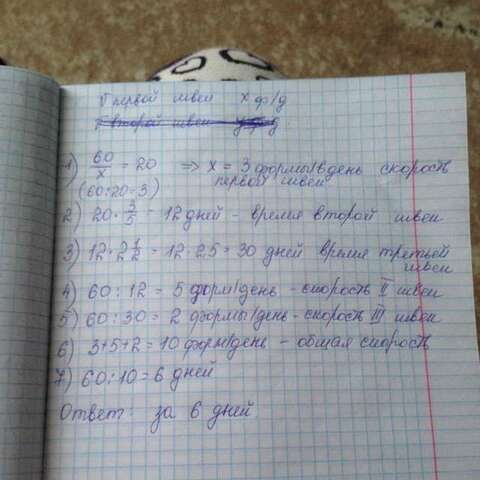 V первой швеи x ф/д
V второй швеи у ф/д
1) 60/x = 20 => x = 3 формы/в день скорость
(60:20=3) первой швеи
2) 20 · 3/5 = 12 дней - время второй швеи
3) 12 · 2 1/2 = 12 · 2,5 = 30 дней время третьей
швеи
4) 60 : 12 = 5 форм/день - скорость II швеи
5) 60 : 30 = 2 формы/день - скорость III швеи
6) 3+5+2 = 10 форм/день - общая скорость
7) 60:10 = 6 дней
Ответ: за 6 дней